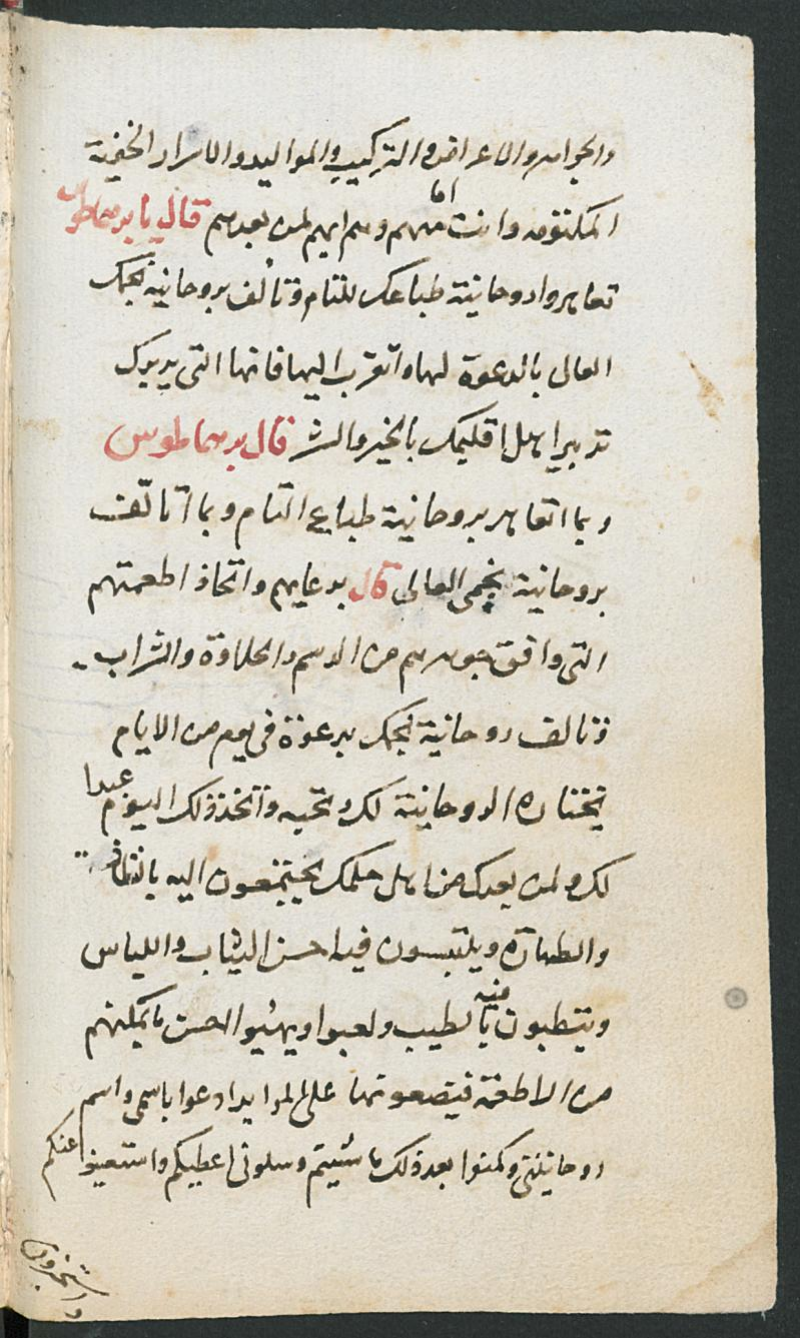 والجواهر والاعراض والتركيب والمواليد والاسرار الخفية
المكتومه وانت اما منهم وهم ايهم لمن بعدهم قال يا برهماطوس
تعاهد وا روحانية طباعك للتام وتألف بروحانية نجمك
العالى بالدعوة لها واتقرب اليها فانها التى يديرك
تدبير اهل اقليمك بالخير والشر قال برهماطوس
وبما اتعاهد بروحانية طباع التام وبما اتالف
بروحانية نجمى العالى قال بدعايهم واتخاذ اطعمتهم
التى وافق جوهرهم من الدسم والحلاوة والشراب
وتالف روحانية نجمك بدعوة فى يوم من الايام
تختاره الروحانية لك وتحيه وتتخذ ذلك اليوم عيدا
لك ولمن بعدك من اهل حكمك يجتمعون اليه بالنظافة
والطهارة ويلتبسون فيه احسن الثياب واللباس
ويتطيبون فيه بالطيب ولعبوا ويهئيوا الحسن ما يمكنهم
من الاطعمة فيضعونها على الموايد ادعوا باسمى واسم
روحانيتى وكنوا بعد ذلك ما شيتم وسلونى اعطيكم واستعينوا عنكم
واستخبروا